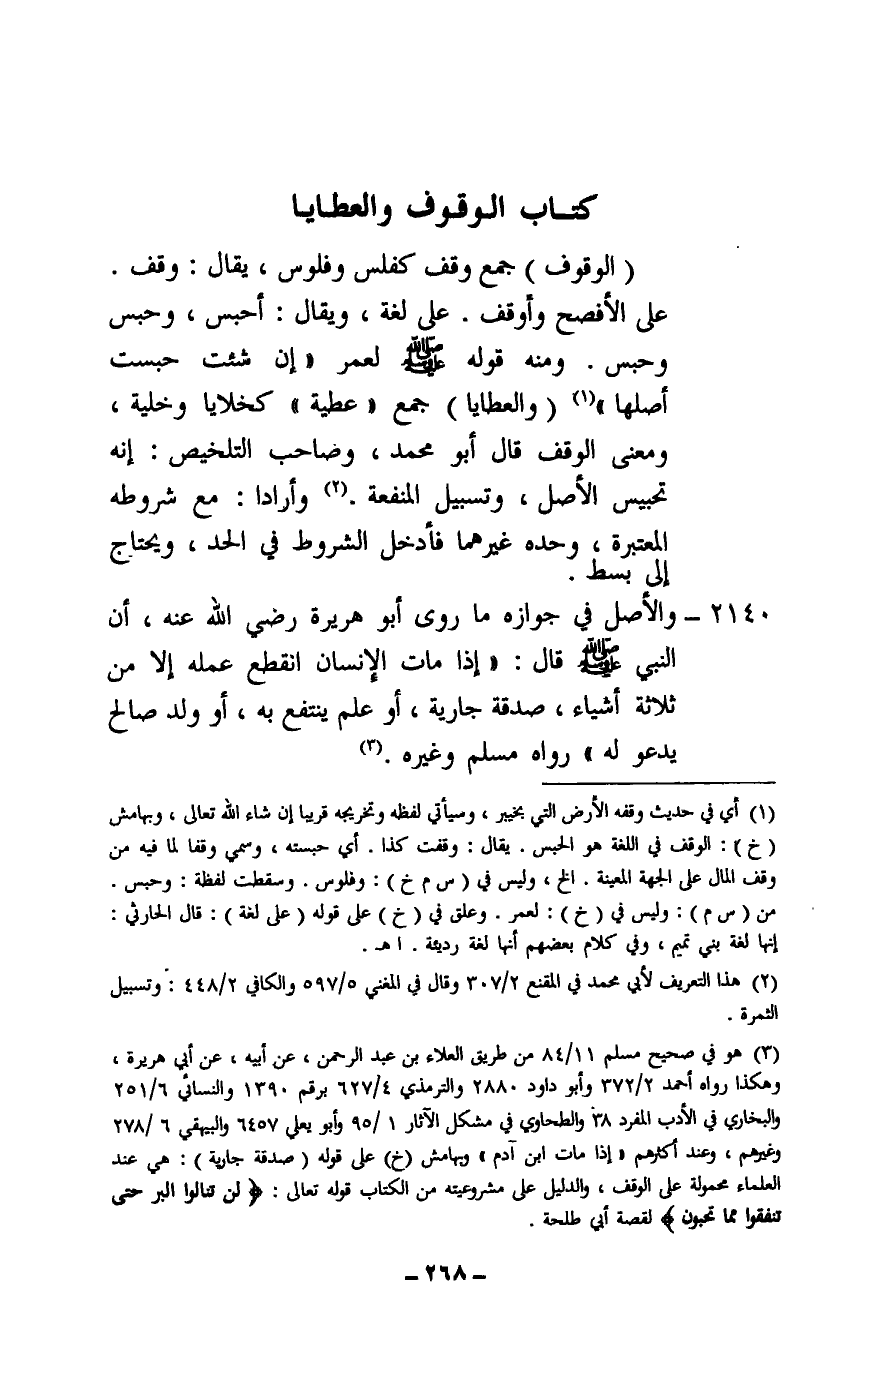 كتاب الوقوف والعطايا
( الوقوف ) جمع وقف كفلس وفلوس ، يقال : وقف .
على الأفصح وأوقف . على لغة ، ويقال : أحبس ، وحبس
وحبس . ومنه قوله ﷺ لعمر « إن شئت حبست
أصلها »(١) ( والعطايا ) جمع « عطية » كخلايا وخلية ،
ومعنى الوقف قال أبو محمد ، وصاحب التلخيص : إنه
تحبيس الأصل ، وتسبيل المنفعة .(٢) وأرادا : مع شروطه
المعتبرة ، وحده غيرهما فأدخل الشروط في الحد ، ويحتاج
إلى بسط .
٢١٤٠ – والأصل في جوازه ما روى أبو هريرة رضي الله عنه ، أن
النبي ﷺ قال : « إذا مات الإنسان انقطع عمله إلا من
ثلاثة أشياء ، صدقة جارية ، أو علم ينتفع به ، أو ولد صالح
يدعو له » رواه مسلم وغيره .(٣)
(١) أي في حديث وقفه الأرض التي بخيبر ، وسيأتي لفظه وتخريجه قريبا إن شاء الله تعالى ، وبهامش
( خ ) : الوقف في اللغة هو الحبس . يقال : وقفت كذا . أي حبسته ، وسمي وقفا لما فيه من
وقف المال على الجهة المعينة . الخ ، وليس في ( س م خ ) : وفلوس . وسقطت لفظة : وحبس .
من ( س م ) : وليس في ( خ ) : لعمر . وعلق في ( خ ) على قوله ( على لغة ) : قال الحارثي :
إنها لغة بني تميم ، وفي كلام بعضهم أنها لغة رديئة . ا هـ .
(٢) هذا التعريف لأبي محمد في المقنع ٣٠٧/٢ وقال في المغني ٥٩٧/٥ والكافي ٤٤٨/٢ : وتسبيل
الثمرة .
(٣) هو في صحيح مسلم ٨٤/١١ من طريق العلاء بن عبد الرحمن ، عن أبيه ، عن أبي هريرة ،
وهكذا رواه أحمد ٣٧٢/٢ وأبو داود ٢٨٨٠ والترمذي ٦٢٧/٤ برقم ١٣٩٠ والنسائي ٢٥١/٦
والبخاري في الأدب المفرد ٣٨ والطحاوي في مشكل الآثار ٩٥/١ وأبو يعلي ٦٤٥٧ والبيهقي ٢٧٨/٦
وغيرهم ، وعند أكثرهم « إذا مات ابن آدم » وبهامش (خ) على قوله ( صدقة جارية ) : هي عند
العلماء محمولة على الوقف ، والدليل على مشروعيته من الكتاب قوله تعالى : ﴿ لن تنالوا البر حتى
تنفقوا مما تحبون ﴾ لقصة أبي طلحة .
– ٢٦٨ –